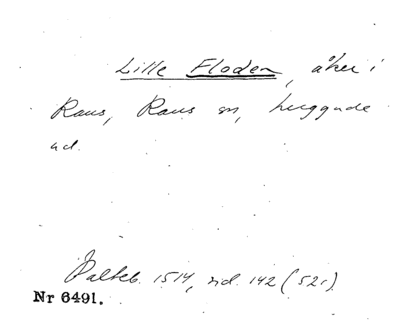 Lille Floden, åker i
Raus, Raus sn, Luggude
hd.
Palteb. 1514, sid. 142 (521)
Nr 6491.